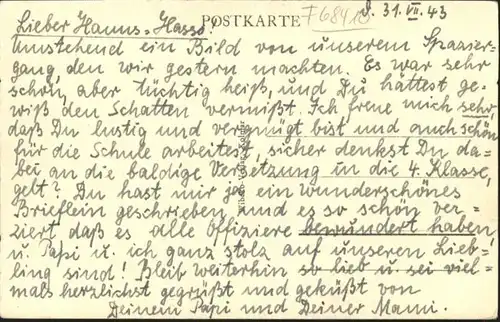 POSTKARTE F68418
31. VII. 43
Lieber Hanns-Hasso!
Umstehend ein Bild von unserem Spazier-
gang, den wir gestern machten. Es war sehr
schön, aber tüchtig heiß, und Du hättest ge-
wiß den Schatten vermißt. Ich freue mich sehr,
daß Du lustig und vergnügt bist und auch schön
für die Schule arbeitest, sicher denkst Du da-
bei an die baldige Versetzung in die 4. Klasse,
gelt? Du hast mir ja ein wunderschönes
Brieflein geschrieben und es so schön ver-
ziert, daß es alle Offiziere bewundert haben
u. Papi u. ich ganz stolz auf unseren Lieb-
ling sind! Bleib weiterhin so lieb u. sei viel-
mals herzlichst gegrüßt und geküßt von
Deinem Papi und Deiner Mami.